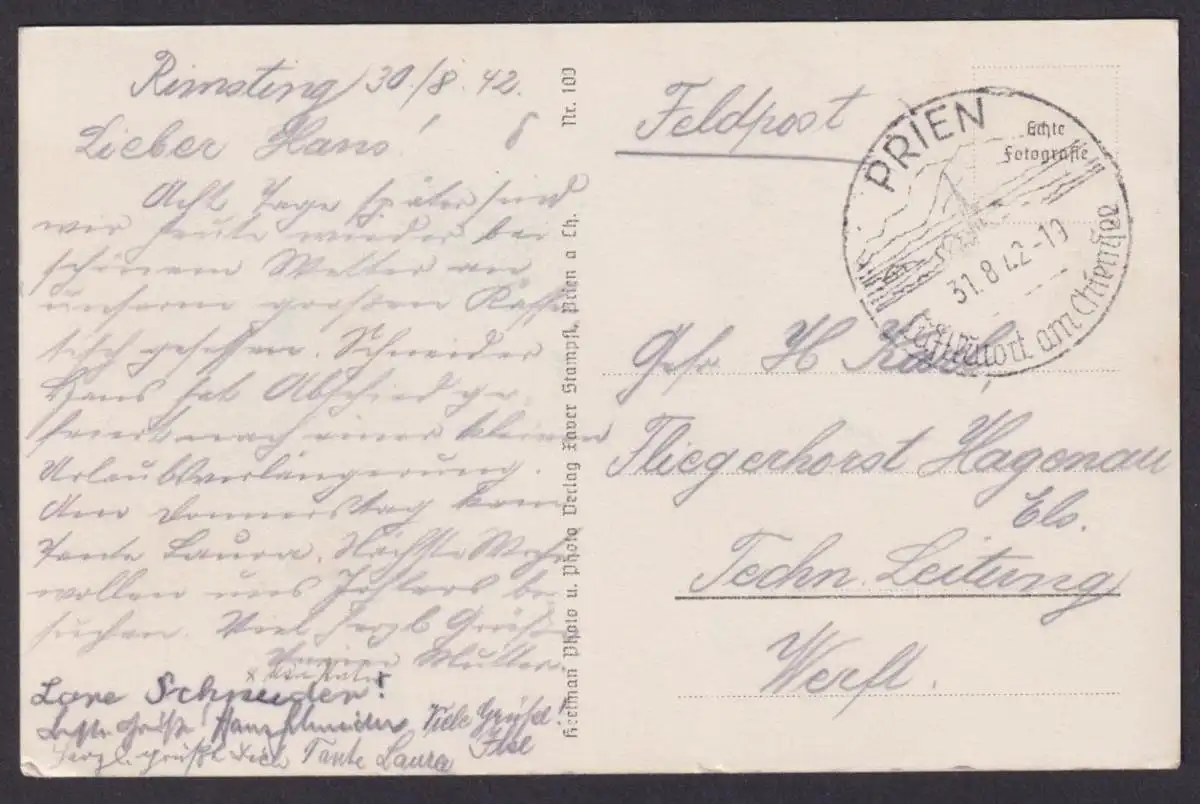 Rimsting 30/8. 42.
Lieber Hans!
Acht Tage später sind
wir heute wieder bei
schönem Wetter an
unserem großen Kaffe
tisch gesessen. Schneider
Hans hat Abschied ge-
feiert nach einer kleinen
Urlaubsverlängerung.
Am Donnerstag kam
Tante Laura. Nächste Woche
wollen uns be-
suchen. Viel herzl Grüße
Mutter
Lore Schneider!
Beste Grüße! Hans Schneider Viele Grüße!
Ilse
Herzl. grüßt Dich Tante Laura
Nr. 100
Photo u. Photo Verlag Xaver Stampfl, Prien a Ch.
Feldpost
Echte
Fotografie
PRIEN
31.8.42-10
Luftkurort am Chiemsee
Gefr H
Fliegerhorst Hagenau
Els.
Techn. Leitung
Werft.